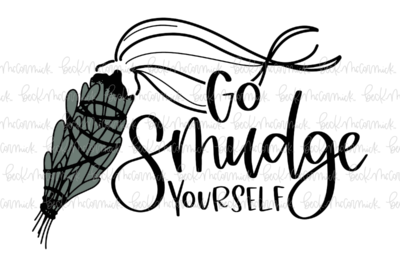 GO
Smudge
YOURSELF